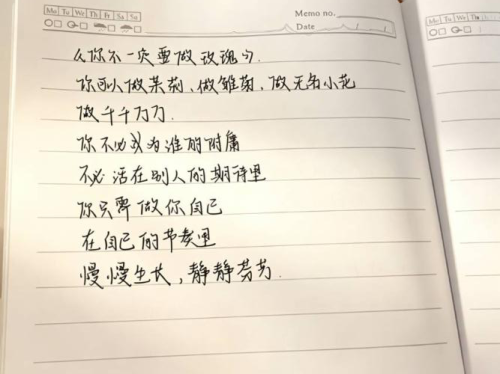 Mo Tu We Th Fr Sa Su
Memo no.
Date
你不一定要做玫瑰
你可以做茉莉、做雏菊、做无名小花
做千千万万.
你不必成为谁的附庸
不必活在别人的期待里
你只需做你自己
在自己的节奏里
慢慢生长，静静芬芳.